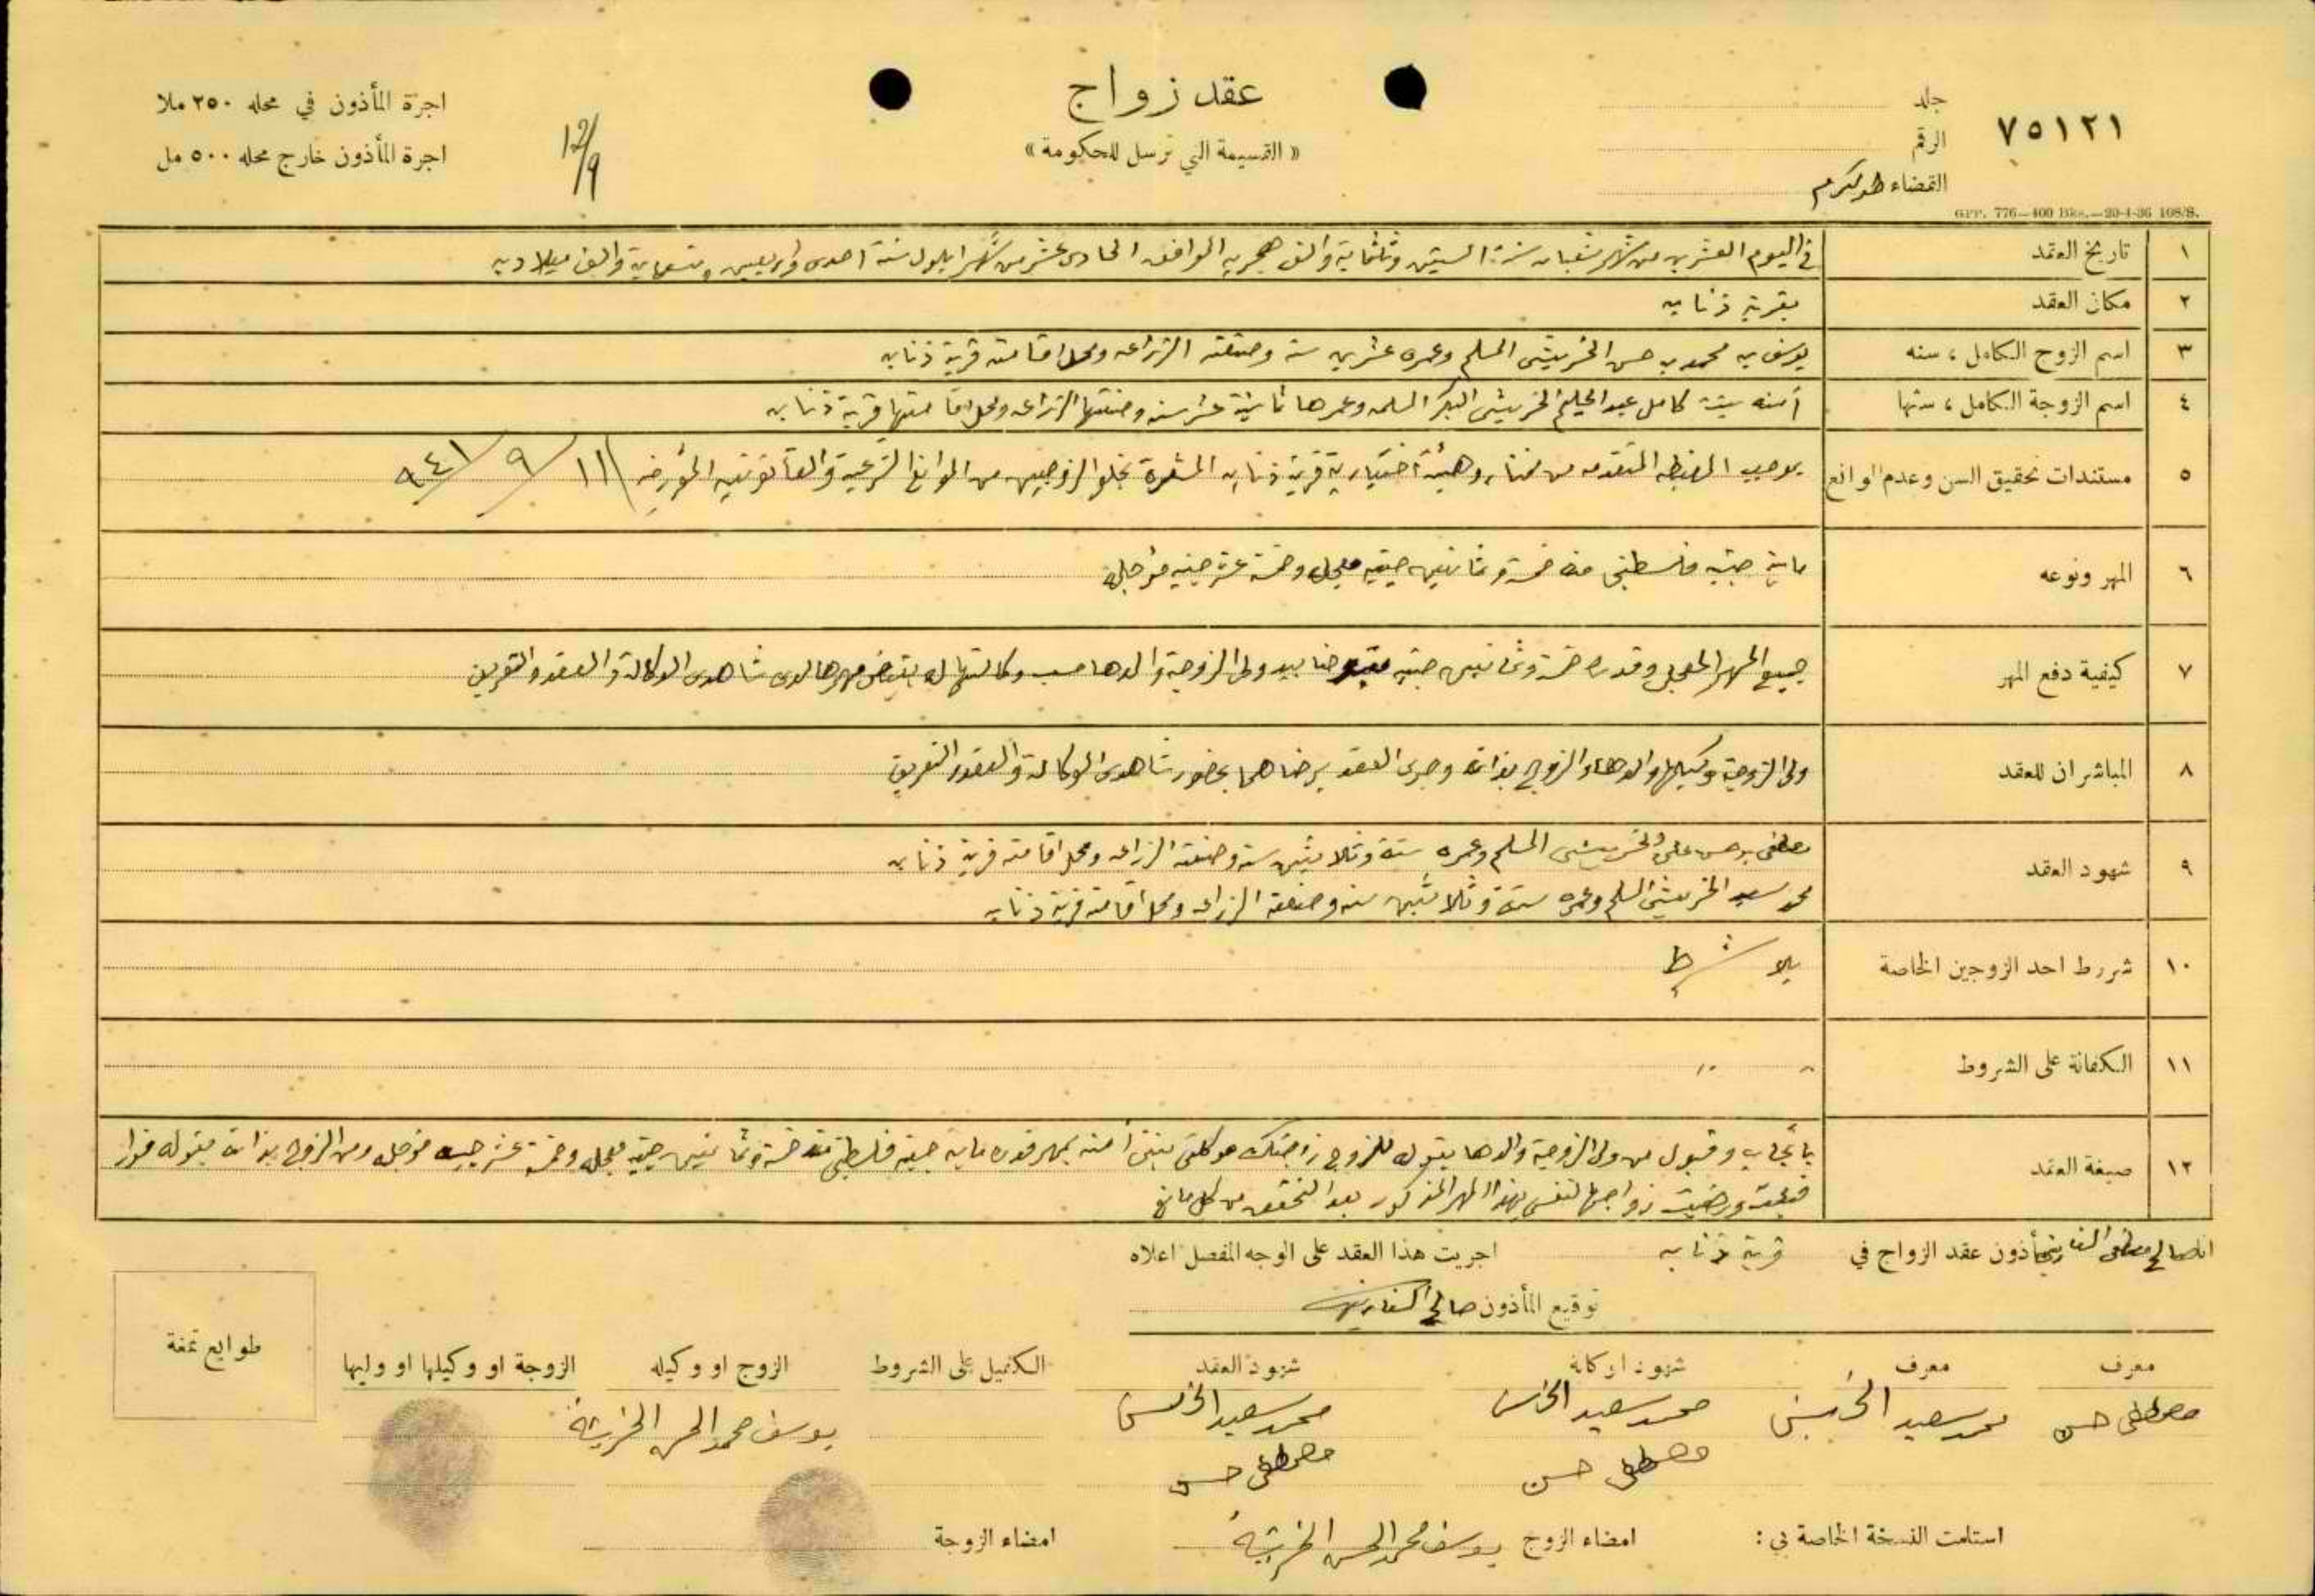 ٧٥١٢١
جلد
الرقم
القضاء طولكرم
GPP. 776—400 Bks.—20-4-36 108/S.
عقد زواج
« القسيمة التي ترسل للحكومة »
12/9
اجرة المأذون في محله ٢٥٠ ملا
اجرة المأذون خارج محله ٥٠٠ مل
١ تاريخ العقد في اليوم العشرين من شهر شعبان سنة الستين وثلثماية والف هجريه الموافق الحادي عشر من شهر ايلول سنة احدى واربعين وتسعماية والف ميلاديه
٢ مكان العقد بقرية ذنابه
٣ اسم الزوج الكامل ، سنه يوسف بن محمد بن حسن الخريشي المسلم وعمره عشرين سنة وصنعته الزراعه ومحل اقامته قرية ذنابه
٤ اسم الزوجة الكامل ، سنها آمنه بنت كامل عبد الحليم الخريشي البكر المسلمه وعمرها ثمانية عشر سنه وصنعتها الزراعه ومحل اقامتها قرية ذنابه
٥ مستندات تحقيق السن وعدم الموانع بموجب المضبطه المتقدمه من مختار وهيئة اختيارية قرية ذنابه المشعرة بخلو الزوجين من الموانع الشرعية والقانونيه المؤرخه ١١/٩/٩٤١
٦ المهر ونوعه ماية جنيه فلسطيني منه خمسة وثمانين جنيه معجل وخمسة عشر جنيه مؤجله
٧ كيفية دفع المهر جميع المهر المعجل وقدره خمسة وثمانين جنيه بيد ولي الزوجة والدها حسب وكالتها له بقبض مهرها لدى شاهدي الوكالة والعقد والتعريف
٨ المباشران للعقد ولي الزوجة وكيلها والدها والزوج بذاته وجرى العقد برضاهما بحضور شاهدي الوكالة والعقد والتعريف
٩ شهود العقد مصطفى بن حسن علي الخريشي المسلم وعمره ستة وثلاثين سنة وصنعته الزراعه ومحل اقامته قرية ذنابه
محمد سعيد الخريشي المسلم وعمره ستة وثلاثين سنه وصنعته الزراعه ومحل اقامته قرية ذنابه
١٠ شروط احد الزوجين الخاصة بلا شرط
١١ الكفالة على الشروط " "
١٢ صيغة العقد بايجاب وقبول من ولي الزوجة والدها بقوله للزوج زوجتك موكلتي بنتي آمنه بمهر قدره ماية جنيه فلسطيني منه خمسة وثمانين جنيه معجل وخمسة عشر جنيه مؤجل ومن الزوج بذاته بقوله فورا
قبلت ورضيت زواجها لنفسي بهذا المهر المذكور بعد التحقق من كل مانع
انا صالح مصطفى مأذون عقد الزواج في قرية ذنابه اجريت هذا العقد على الوجه المفصل اعلاه
توقيع المأذون صالح
معرف معرف شهود الوكالة شهود العقد الكفيل على الشروط الزوج او وكيله الزوجة او وكيلها او وليها طوابع تمغة
مصطفى حسن محمد سعيد محمد سعيد محمد سعيد يوسف محمد الحسن الخريشه
مصطفى حسن مصطفى حسن
استلمت النسخة الخاصة بي : امضاء الزوج يوسف محمد الحسن الخريشه امضاء الزوجة